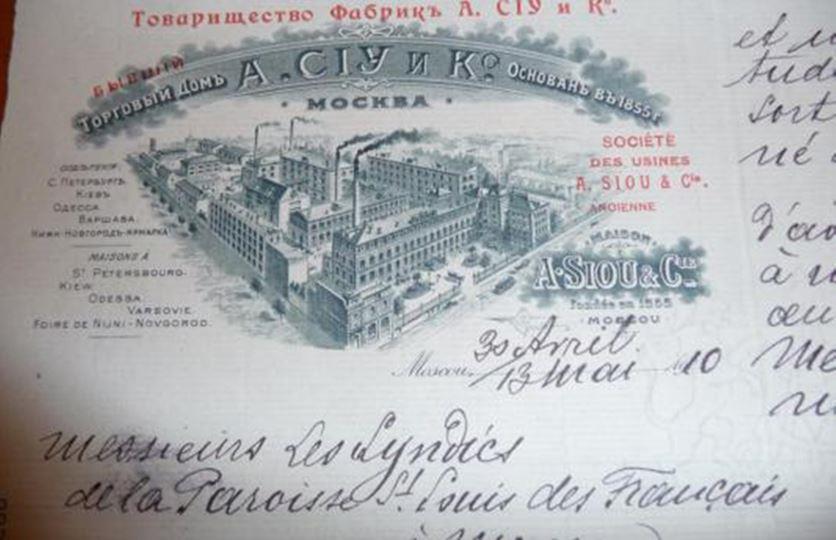 Товарищество Фабрикъ А. СІУ и Ко.
БЫВШІЙ
Торговый Домъ А. СІУ и Ко. Основанъ въ 1855 г.
МОСКВА
ОТДѢЛЕНІЯ:
С. ПЕТЕРБУРГЪ.
КІЕВЪ.
ОДЕССА.
ВАРШАВА.
НИЖН-НОВГОРОДЪ-ЯРМАРКА
MAISONS À
ST PETERSBOURG.
KIEW.
ODESSA.
VARSOVIE.
FOIRE DE NIJNI-NOVGOROD.
SOCIÉTÉ
DES USINES
A. SIOU & Cie.
ANCIENNE
MAISON
A. SIOU & CIE
Fondée en 1855
MOSCOU
Moscou, 30 Avril 10
13 mai
Messieurs Les Syndics
de la Paroisse St. Louis des Français
à
et
sort
né
d'
à